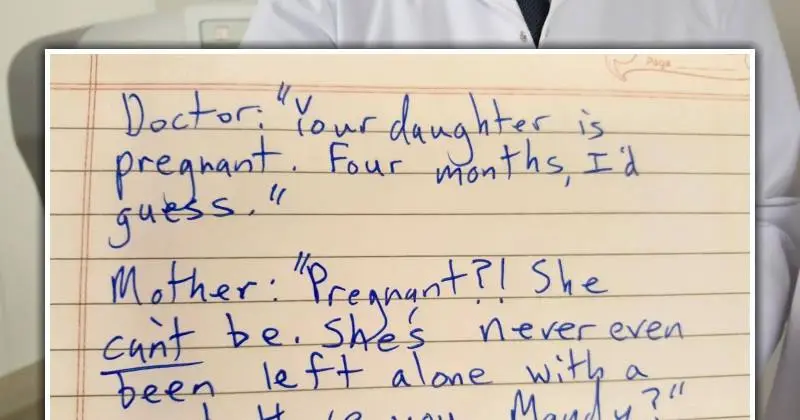 Page
Doctor: "Your daughter is
pregnant. Four months, I'd
guess."
Mother: "Pregnant?! She
can't be. She's never even
been left alone with a
you, Mandy?"